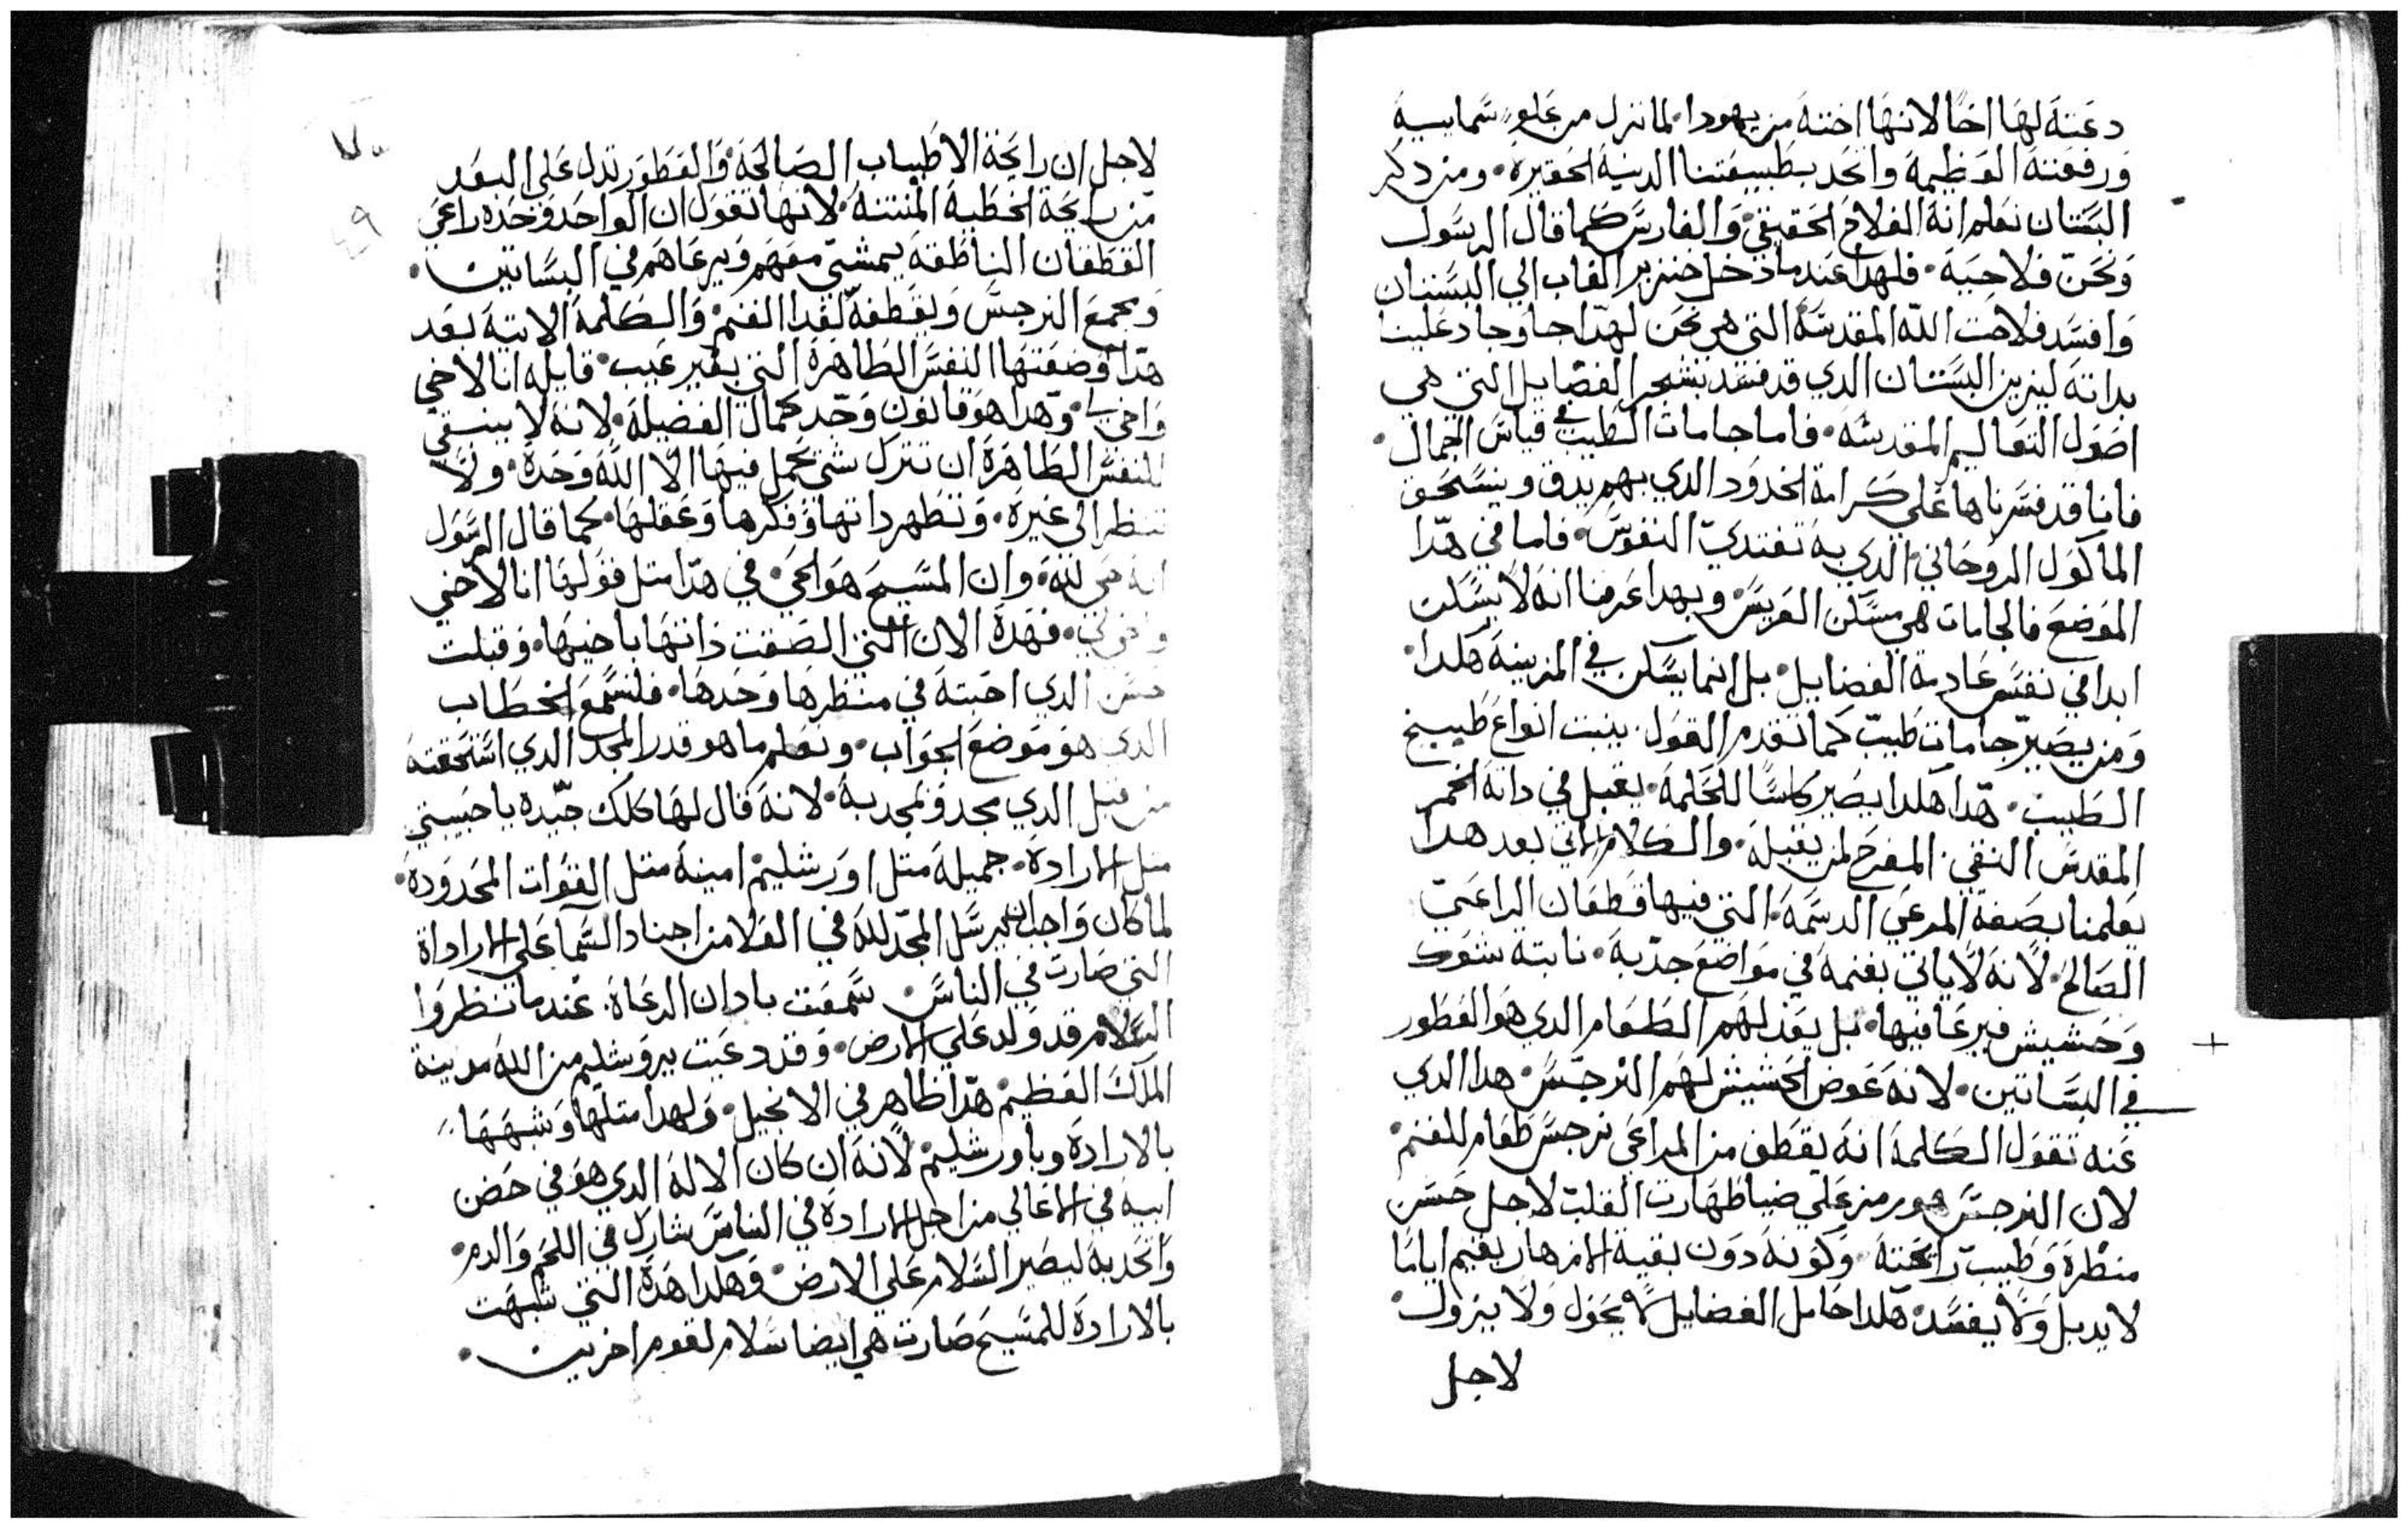 دعته لها اخا لانها اخته من يهودا. لما نزل من علو سماييه
ورفعته العظيمه واتحد بطبيعتنا الدنية الحقيره. ومن دكر
البستان نعلم انه الفلاح الحقيقي والغارس كما قال الرسول
ونحن فلاحته. فلهدا عندما دخل خنزير الغاب الي البستان
وافسد فلاحت الله المقدسه التي هي نحن لهدا جا وجا د علينا
بداته ليزين البستان الدي قد فسد بشجر الفضايل التي هي
اصول التعاليم المقدسه. فاما جامات الطيب في قياس الجمال.
فاننا قد فسرناها علي كرامة الخدود الدي بهم يدق وينسحق
الماكول الروحاني الدي به تغتدي النفوس. فاما في هدا
الموضع فالجامات هي مسكن العريس وبهدا عرفنا انه لا يسكن
ابدا في نفس عادمة الفضايل. بل انما يسكن في المزينه هكدا.
ومن يصير جامات طيب كما تقدم القول. ينبت انواع طبيخ
الطيب. هدا هكدا يصير كاسا للحكمه. يقبل في داته الخمر
المقدس النقي. المفرح لمن يقبله. والكلام الاتي بعد هدا
يعلمنا بصفة المرعي الدسمه. التي فيها قطعان الراعي
الصالح. لانه لا ياتي بغنمه في مواضع جدبة. نابته شوك
وحشيش فيرعا فيها. بل يعد لهم الطعام الدي هو العطور
في البساتين. لانه عوض الحشيش لهم النرجس. هدا الدي
عنه تقول الكلمه انه يقطف من المراعي نرجس طعام للغنم.
لان النرجس هو رمز علي ضيا طهارت القلب لاجل حسن
منظره وطيب رايحته. وكونه دون بقية الازهار يقيم اياما
لا يدبل ولا يفسد. هكدا حامل الفضايل لا يحول ولا يزول.
لاجل
لاجل ان رايحة الاطياب الصالحه والعطور تدل علي البعد
من رايحة الخطية المنتنه. لانها تقول ان الواحد وحده راعي
القطعان الناطقه يمشي معهم ويرعاهم في البساتين.
ويجمع النرجس ويقطفه لغدا الغنم. والكلمه الاتية بعد
هدا وضعتها النفس الطاهره التي بغير عيب. قايله انا لاخي
واخي لي. وهدا هو قانون وحد كمال الفضيلة. لانه لا ينبغي
للنفس الطاهره ان تترك شي يحمل فيها الا الله وحده. ولا
تنظر الي غيره. وتطهر داتها وفكرها وعقلها. كما قال الرسول
انه حي لله. وان المسيح هو الحي. في هدا مثل قولها انا لاخي
واخي لي. فهده الان التي الصقت داتها باخيها. وقبلت
حسن الدي احبته في منظرها وحدها. فلنسمع الخطاب
الدي هو موضع الجواب. ونعلم ما هو قدر المجد الدي استحقته
من قبل الدي يمجد وتمجد به. لانه قال لها كلك جيده يا حبيبتي
مثل الاراده. جميلة مثل اورشليم امينة مثل القوات المحدوده.
لما كان واجب ان يرسل المجد لله في العلا من اجناد السما علي الاراداة
التي صارت في الناس سمعت بادان الرعاة. عندما نظروا
السلام قد ولد علي الارض. وقد دعيت يروشليم من الله مدينة
الملك العظيم هدا ظاهر في الانجيل. ولهدا مثلها وشبهها
بالاراده وباورشليم لانه ان كان الاله الدي هو في حضن
ابيه في الاعالي من اجل الاراده في الناس شارك في اللحم والدم.
واتحد به ليصير السلام علي الارض. وهكدا هده التي شبهت
بالاراده للمسيح صارت هي ايضا سلام لقوم اخرين.